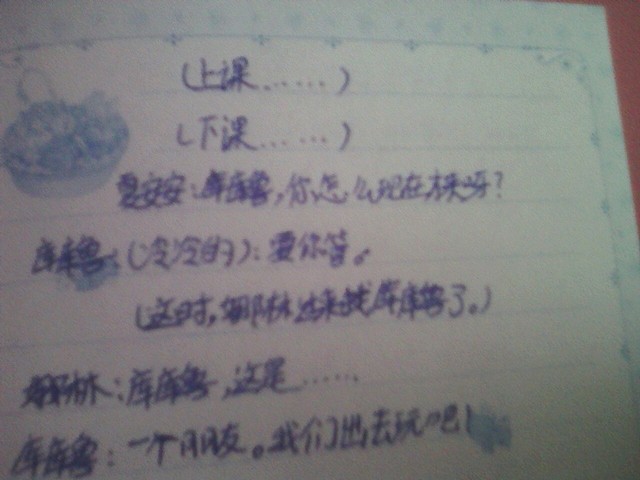 (上课……)
(下课……)
夏安安:库库鲁,你怎么现在才来呀?
库库鲁:(冷冷的):要你管。
(这时,娜林过来找库库鲁了。)
林:库库鲁,这是……
库库鲁:一个朋友。我们出去玩吧!